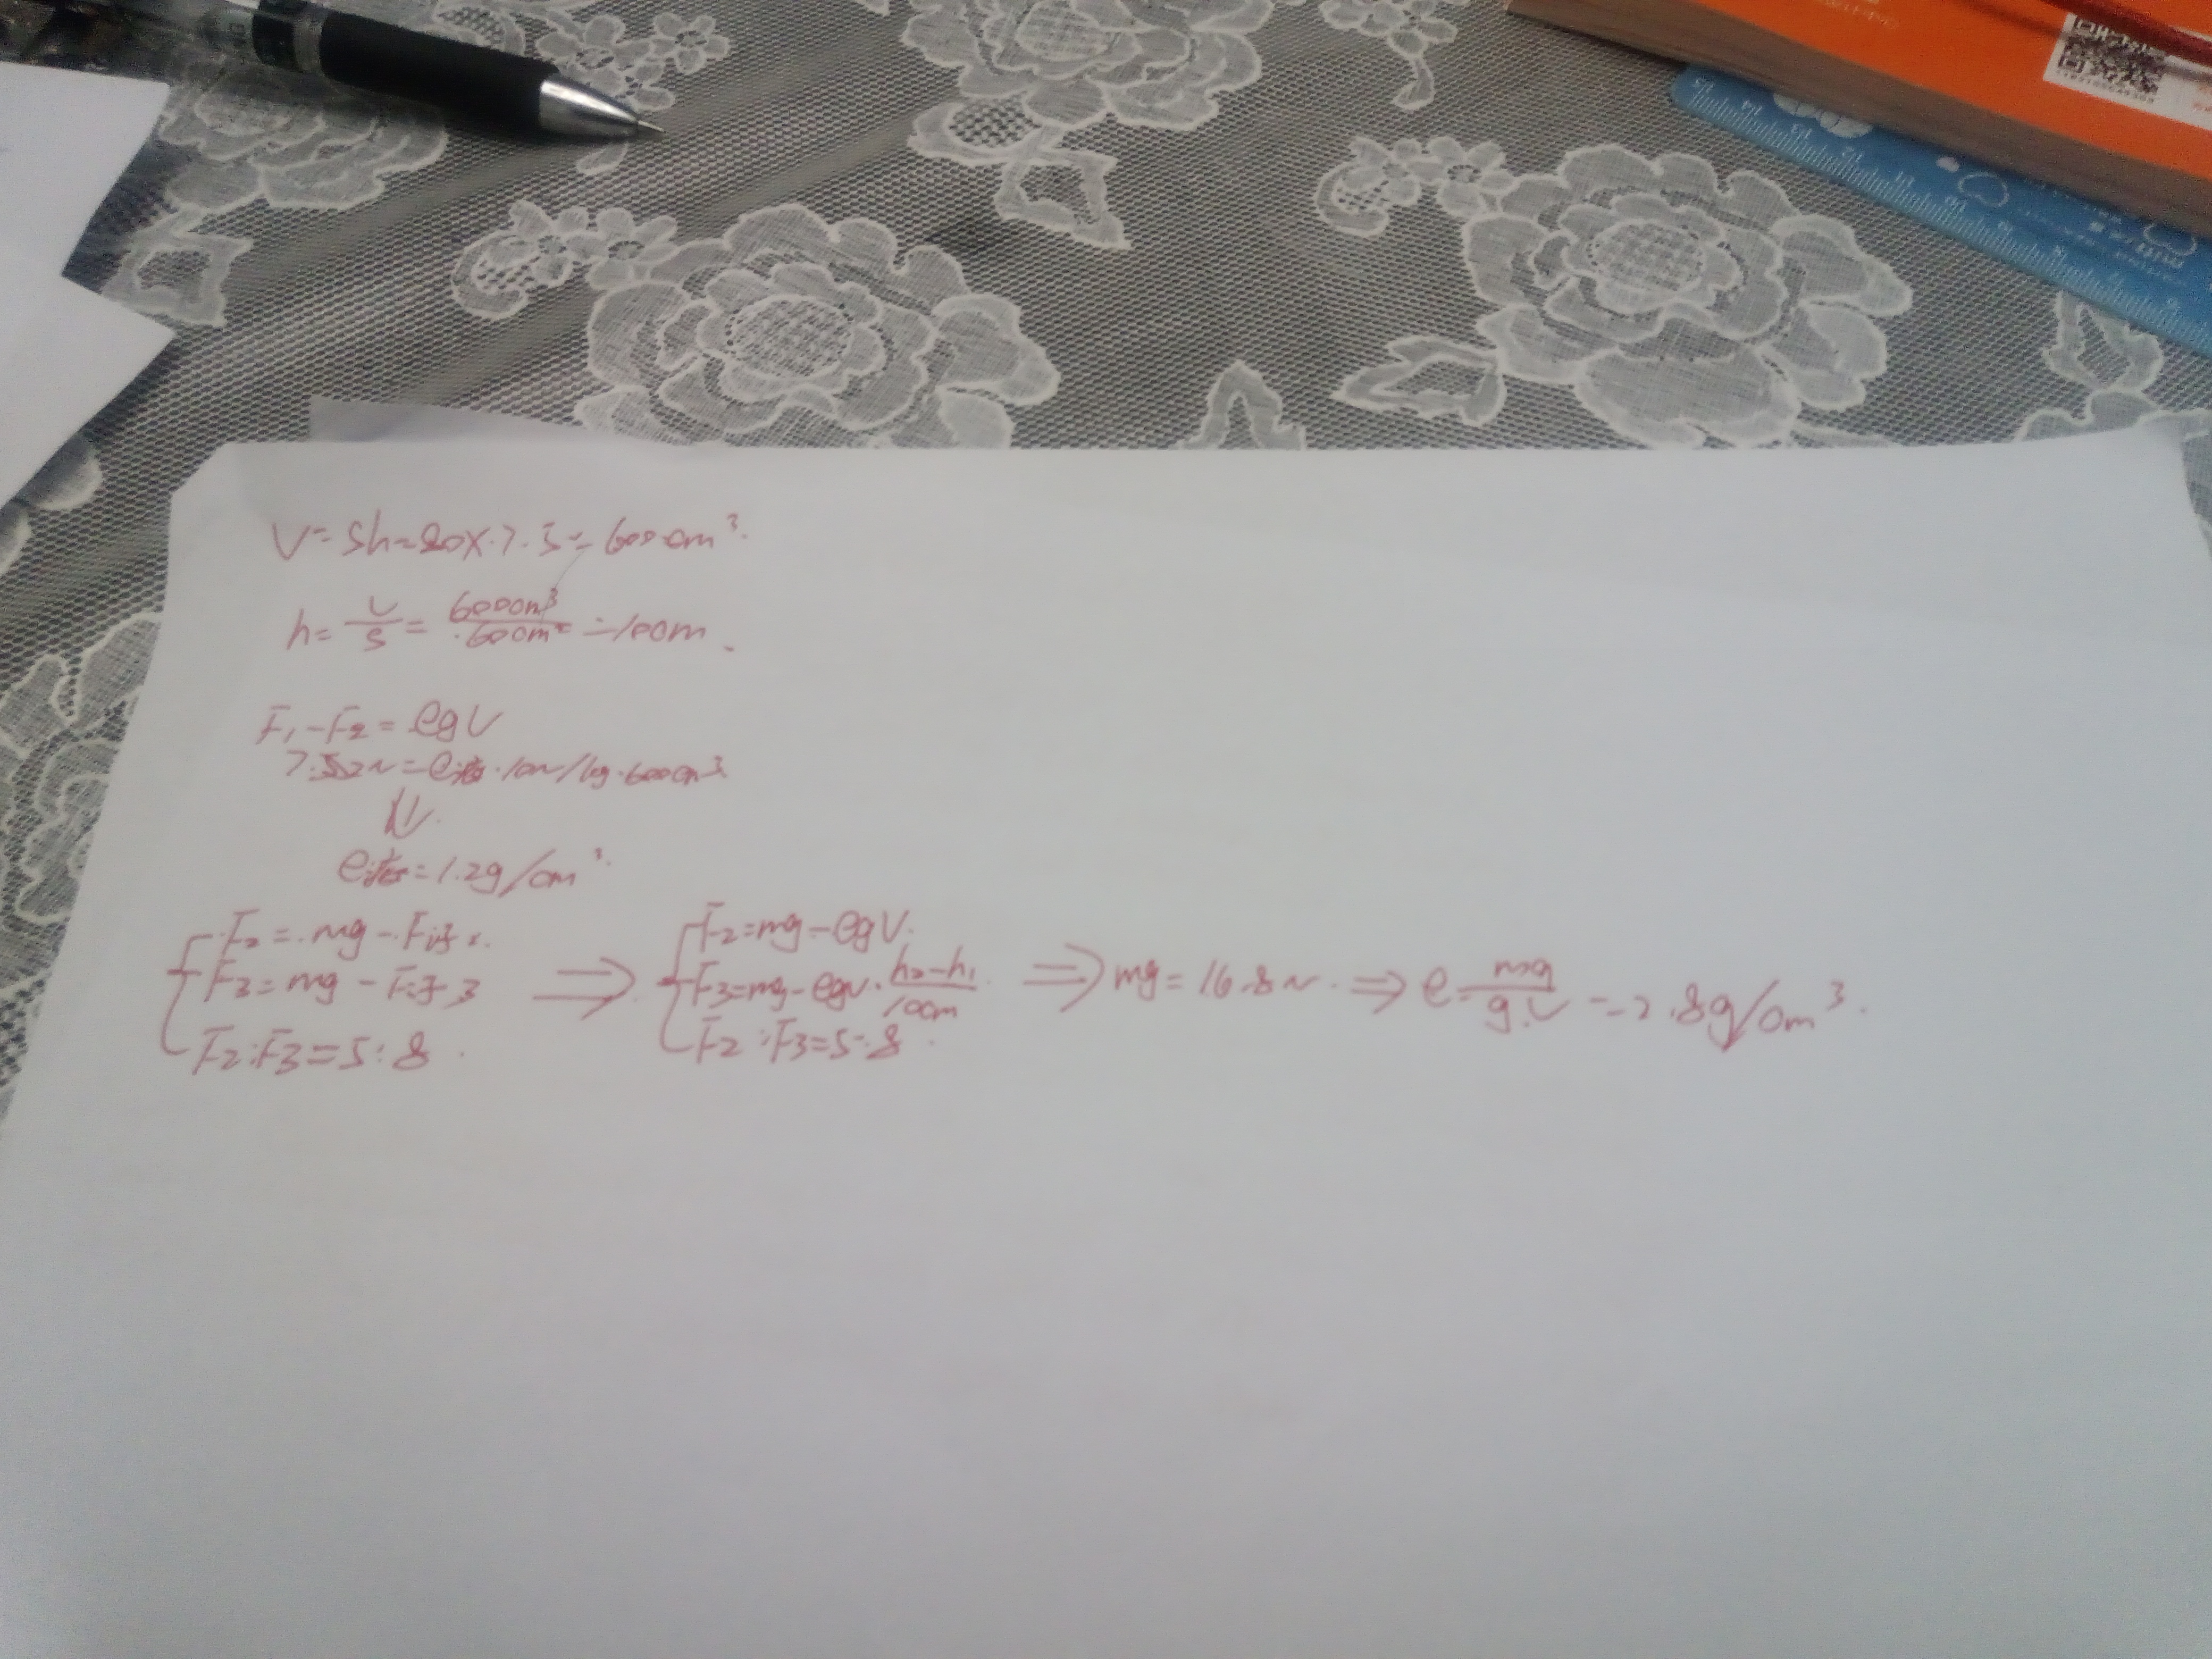 V=Sh=80×7.5=600cm³.
h=V/S=600cm³/60cm²=10cm.
F₁-F₂=ρgV
7.2N=ρ液·10N/kg·600cm³
⇓
ρ液=1.2g/cm³.
F₂=mg-F浮₂.
F₃=mg-F浮3
F₂:F₃=5:8.
⇒
F₂=mg-ρgV.
F₃=mg-ρgV·(h₂-h₁)/10cm
F₂:F₃=5:8.
⇒mg=16.8N.⇒ρ=mg/g.V=2.8g/cm³.